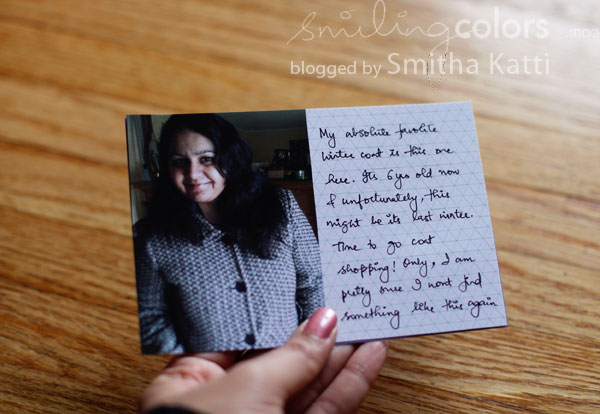 smilingcolors.com
blogged by Smitha Katti
My absolute favorite
winter coat is this one
here. Its 6 yrs old now
& unfortunately, this
might be its last winter.
Time to go coat
shopping! Only, I am
pretty sure I wont find
something like this again